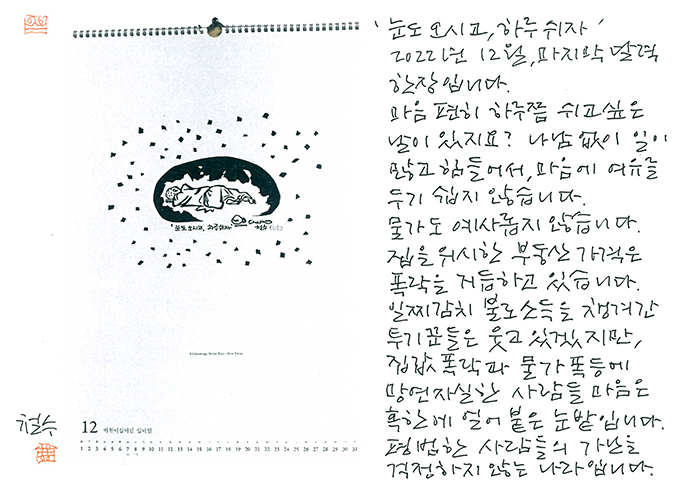 '눈도 오시고, 하루 쉬자'
2022년 12월, 마지막 달력
한장입니다.
마음 편히 하루쯤 쉬고싶은
날이 있지요? 나남없이 일이
많고 힘들어서, 마음에 여유를
두기 쉽지 않습니다.
물가도 예사롭지 않습니다.
집을 위시한 부동산 가격은
폭락을 거듭하고 있습니다.
일찌감치 불로소득을 챙겨간
투기꾼들은 웃고 있겠지만,
집값폭락과 물가폭등에
망연자실한 사람들 마음은
혹한에 얼어붙은 눈밭입니다.
평범한 사람들의 가난은
걱정하지 않는 나라입니다.
'눈도 오시고, 하루쉬자'
철수
12 이천이십이년 십이월
1 2 3 4 5 6 7 8 9 10 11 12 13 14 15 16 17 18 19 20 21 22 23 24 25 26 27 28 29 30 31
철수